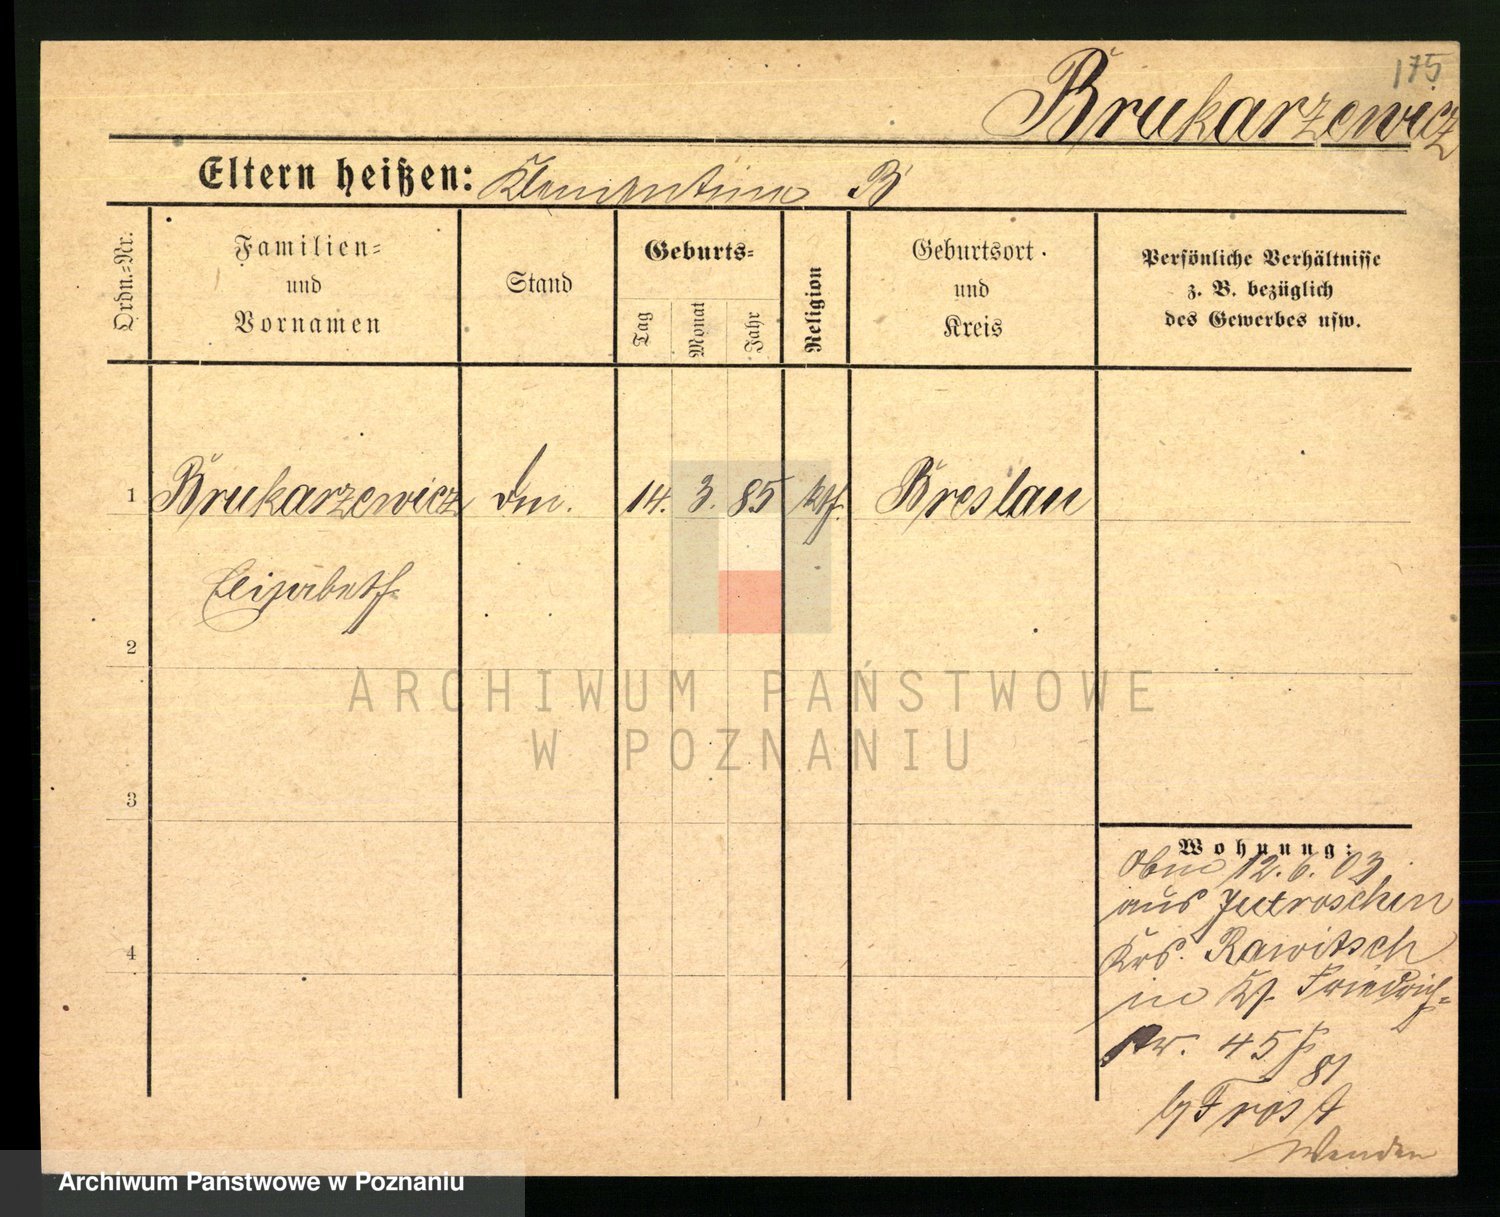 175
Brukarzewicz
Eltern heißen: Klementine B
Ordn.-Nr.
Familien-
und
Vornamen
Stand
Geburts-
Tag
Monat
Jahr
Religion
Geburtsort
und
Kreis
Persönliche Verhältnisse
z. B. bezüglich
des Gewerbes usw.
1 Brukarzewicz 14. 3. 85 kth. Breslau
Elisabeth
2
3
4
Wohnung:
12. 6. 03
aus Jutroschin
Krs. Rawitsch
Friedrich-
str. 45
b/ Frost
ARCHIWUM PAŃSTWOWE
W POZNANIU
Archiwum Państwowe w Poznaniu